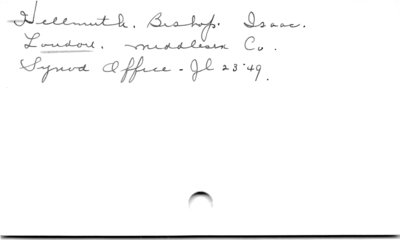 Hellmuth. Bishop. Isaac.
London. Middlesex Co.
Synod Office - Jl 23 '49.